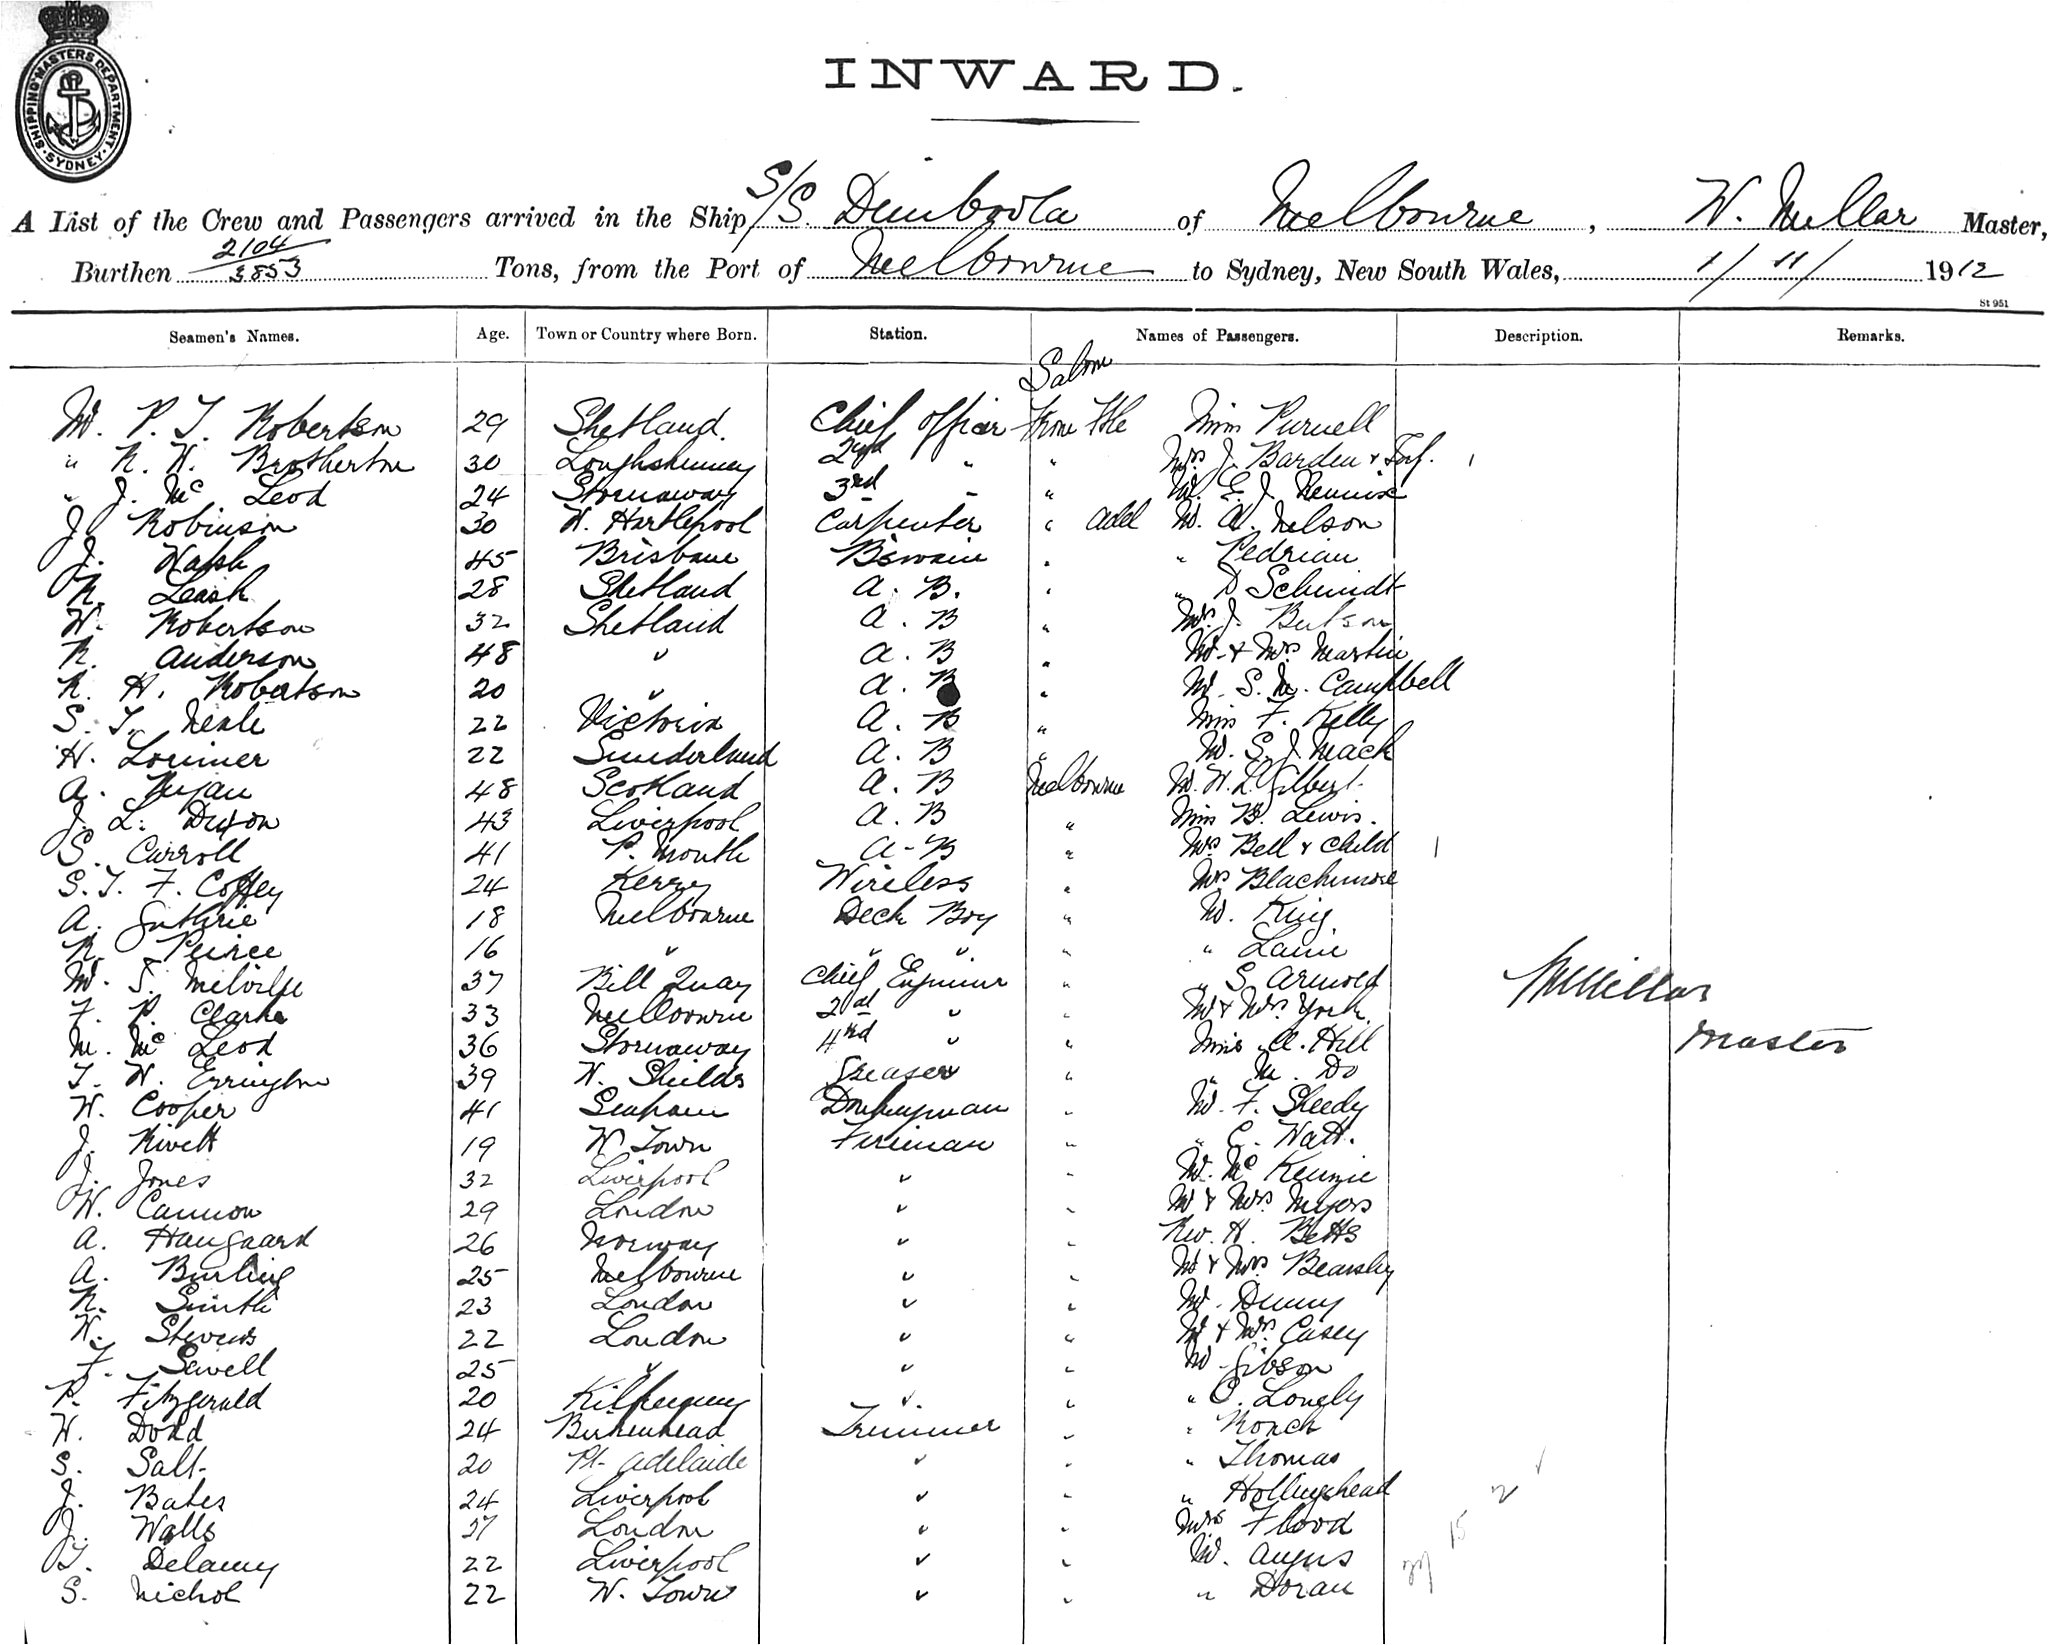 SHIPPING MASTERS DEPARTMENT. SYDNEY.
INWARD.
A List of the Crew and Passengers arrived in the Ship S/S. Dimboola of Melbourne, W. Millar Master,
Burthen 2104/3853 Tons, from the Port of Melbourne to Sydney, New South Wales, 1/11/1912
St 951
Seamen's Names. Age. Town or Country where Born. Station. Names of Passengers. Description. Remarks.
Saloon
Mr. P. T. Robertson 29 Shetland. Chief Officer From Ftle Miss Purnell
" R. W. Brotherton 30 Loughshinney 2nd " " Mrs J. Barden & Inf. 1
" J. Mc Leod 24 Stornaway 3rd " " Mr. E. J. Rennix
J. Robinson 30 W. Hartlepool Carpenter " Adel Mr. A. Nelson
J. Walsh 45 Brisbane Bswain " " Pedrian
R. Leask 28 Shetland A. B. " " D Schmidt
W. Robertson 32 Shetland A. B " Mrs. J. Butson
R. Anderson 48 " A. B " Mr. & Mrs. Martin
R. H. Robertson 20 " A. B " Mr. S. M. Campbell
S. T. Neale 22 Victoria A. B " Miss F. Kelly
H. Lorimer 22 Sunderland A. B " Mr. S. J. Mack
A. 48 Scotland A. B Melbourne Mr. W. L. Gilbert.
J. L. Dixon 43 Liverpool A. B " Miss B. Lewis.
S. Carroll 41 P. Mouth A-B " Mrs Bell & Child 1
S. T. F. Coffey 24 Kerry Wireless " Mrs Blackmore
A. Guthrie 18 Melbourne Deck Boy " Mr. King
R. Peirce 16 " " " " " Laure
Mr. T. Melville 37 Bill Quay Chief Engineer " " S. Arnold
F. P. Clarke 33 Melbourne 2nd " " Mr & Mrs. York.
M. Mc Leod 36 Stornaway 4th " " Miss A. Hill
T. W. Errington 39 N. Shields Greaser " " M. Do
W. Cooper 41 Seaham Donkeyman " Mr. F. Sheedy
J. Rivett 19 W Town Fireman " " C. Watt.
J. Jones 32 Liverpool " " Mr. Mc Kenzie
W. Cannon 29 London " " Mr & Mrs Myers
A. Haugaard 26 Norway " " Rev. H. Betts
A. Burling 25 Melbourne " " Mr & Mrs. Bearsley
R. Smith 23 London " " Mr. Denny
W. Stevens 22 London " " Mr & Mrs. Casey
F. Sewell 25 " " " Mr Gibson
P. Fitzgerald 20 Kilkenny " " " C. Lonely
W. Dodd 24 Birkenhead Trimmer " " Roach
S. Salt 20 Pt. Adelaide " " " Thomas
J. Bates 24 Liverpool " " " Hollingshead
J. Walls 37 London " " Mrs Flood
T. Delaney 22 Liverpool " " Mr. Angus
S. Nichol 22 W. Town " " " Doran
W Millar
Master
15 2